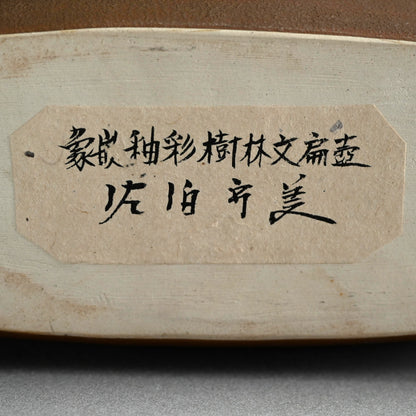 象嵌釉彩樹林文扁壺
佐伯守美